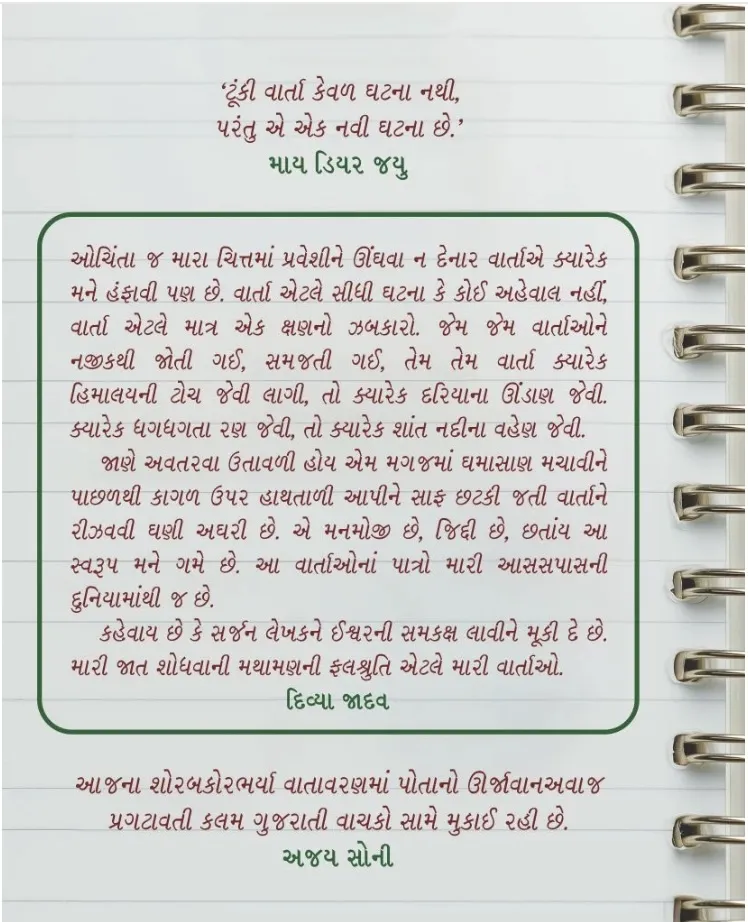 ‘ટૂંકી વાર્તા કેવળ ઘટના નથી,
પરંતુ એ એક નવી ઘટના છે.’
માય ડિયર જયુ
ઓચિંતા જ મારા ચિત્તમાં પ્રવેશીને ઊંઘવા ન દેનાર વાર્તાએ ક્યારેક
મને હંફાવી પણ છે. વાર્તા એટલે સીધી ઘટના કે કોઈ અહેવાલ નહીં,
વાર્તા એટલે માત્ર એક ક્ષણનો ઝબકારો. જેમ જેમ વાર્તાઓને
નજીકથી જોતી ગઈ, સમજતી ગઈ, તેમ તેમ વાર્તા ક્યારેક
હિમાલયની ટોચ જેવી લાગી, તો ક્યારેક દરિયાના ઊંડાણ જેવી.
ક્યારેક ધગધગતા રણ જેવી, તો ક્યારેક શાંત નદીના વહેણ જેવી.
જાણે અવતરવા ઉતાવળી હોય એમ મગજમાં ઘમાસાણ મચાવીને
પાછળથી કાગળ ઉપર હાથતાળી આપીને સાફ છટકી જતી વાર્તાને
રીઝવવી ઘણી અઘરી છે. એ મનમોજી છે, જિદ્દી છે, છતાંય આ
સ્વરૂપ મને ગમે છે. આ વાર્તાઓનાં પાત્રો મારી આસસપાસની
દુનિયામાંથી જ છે.
કહેવાય છે કે સર્જન લેખકને ઈશ્વરની સમકક્ષ લાવીને મૂકી દે છે.
મારી જાત શોધવાની મથામણની ફલશ્રુતિ એટલે મારી વાર્તાઓ.
દિવ્યા જાદવ
આજના શોરબકોરભર્યા વાતાવરણમાં પોતાનો ઊર્જાવાનઅવાજ
પ્રગટાવતી કલમ ગુજરાતી વાચકો સામે મુકાઈ રહી છે.
અજય સોની